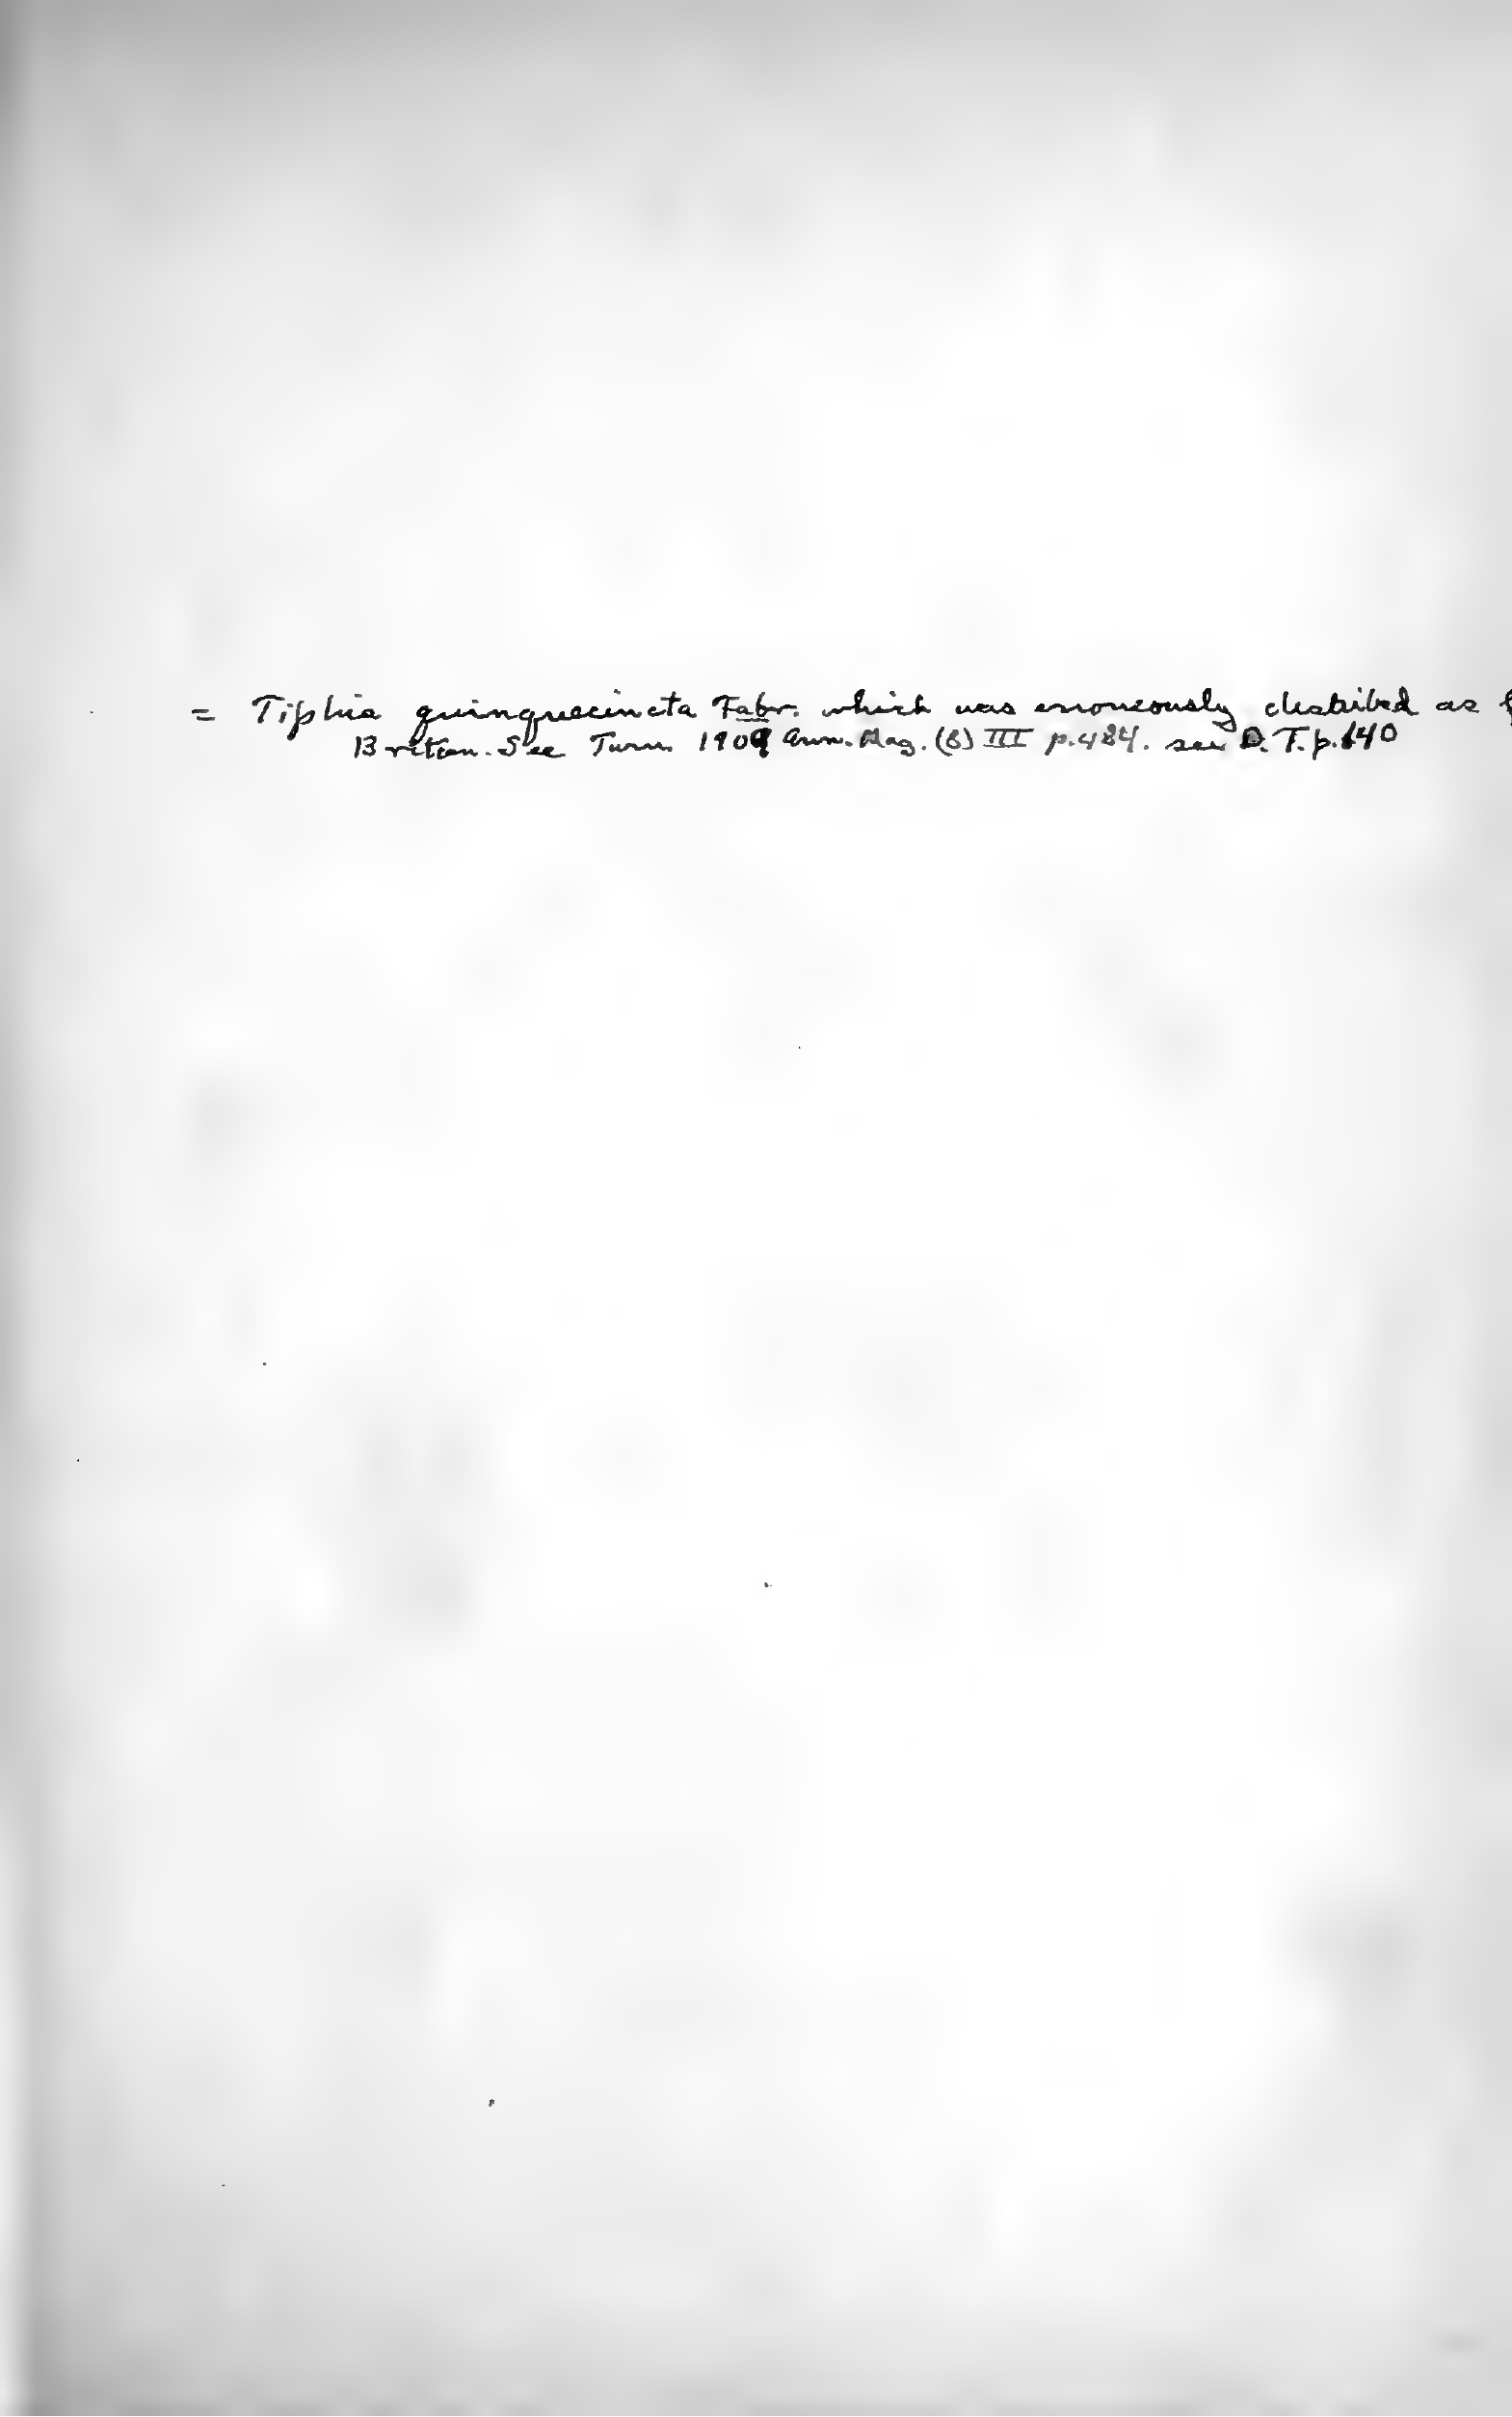 = Tiphia quinquecincta Fabr. which was erroneously described as
Britian. See Turn. 1909 Ann. Mag. (8) III p. 484. see D. T. p. 640